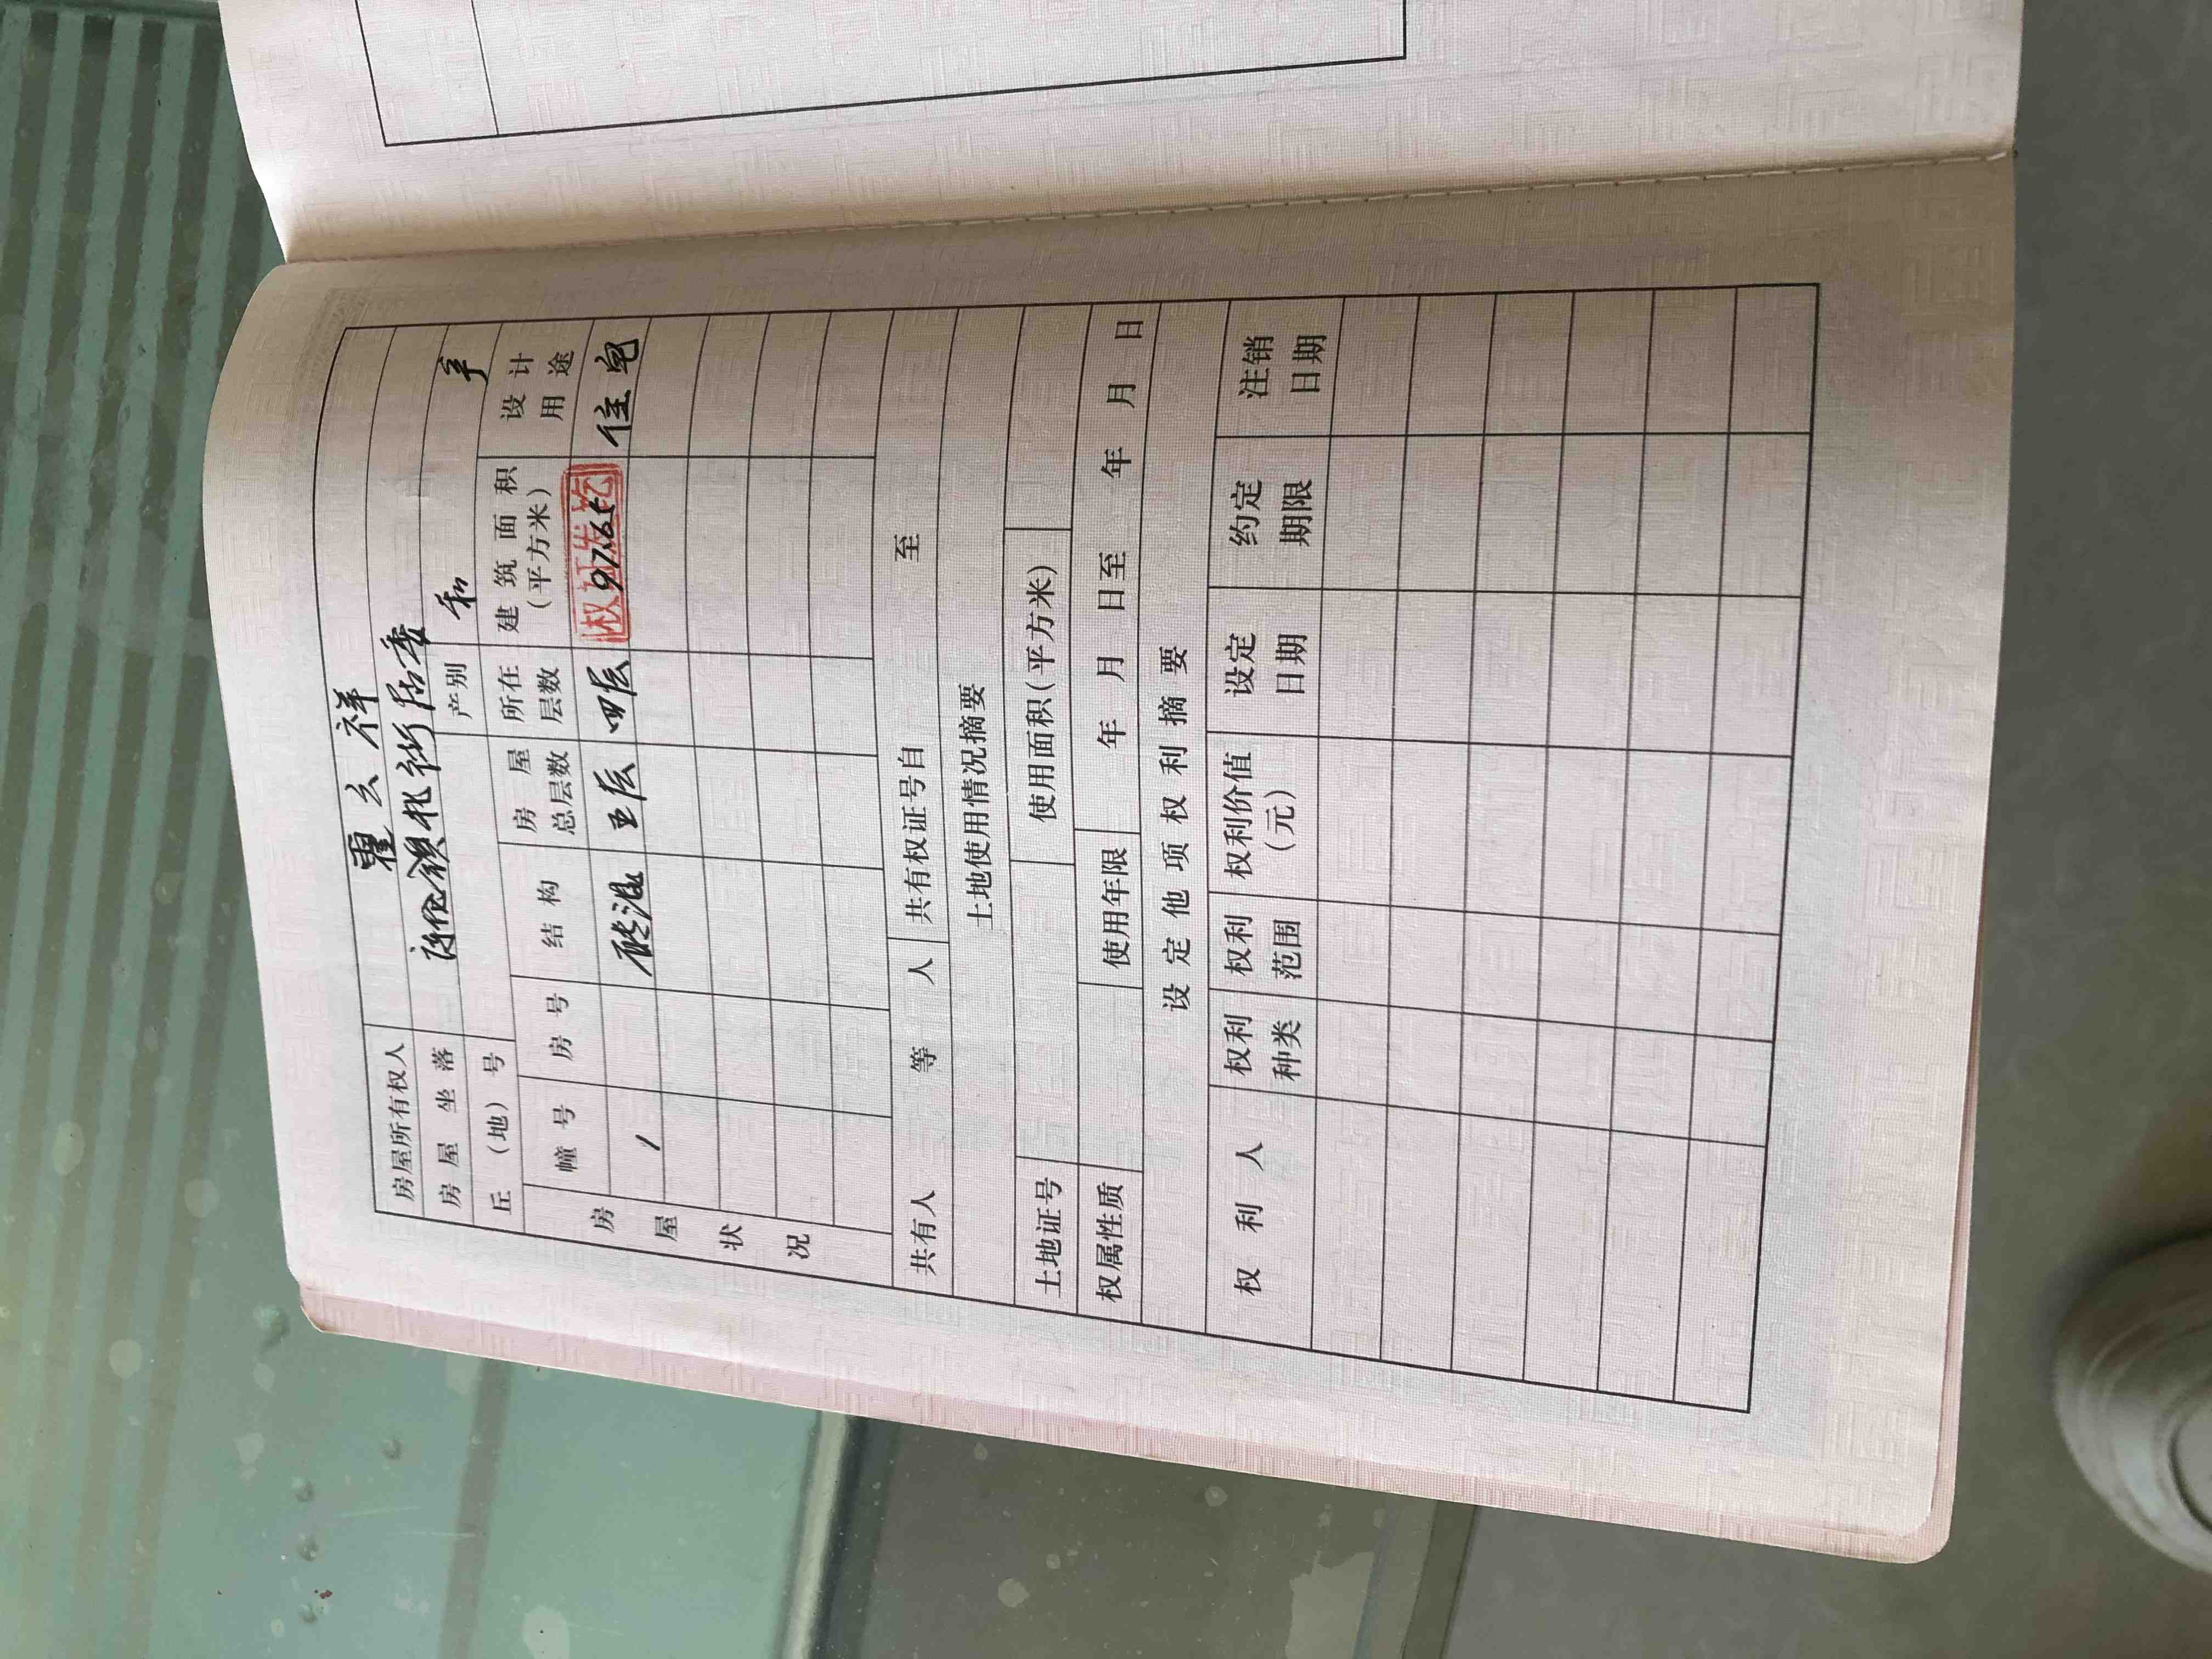 房屋所有权人 霍玄祥
房屋坐落 街居委
丘（地）号 产别 私 产
房屋状况 幢号 房号 结构 房屋总层数 所在层数 建筑面积（平方米） 设计用途
1 砖混 五层 四层 97.65 住宅
共有人 等 人 共有权证号自 至
土地使用情况摘要
土地证号 使用面积（平方米）
权属性质 使用年限 年 月 日至 年 月 日
设定他项权利摘要
权利人 权利种类 权利范围 权利价值（元） 设定日期 约定期限 注销日期